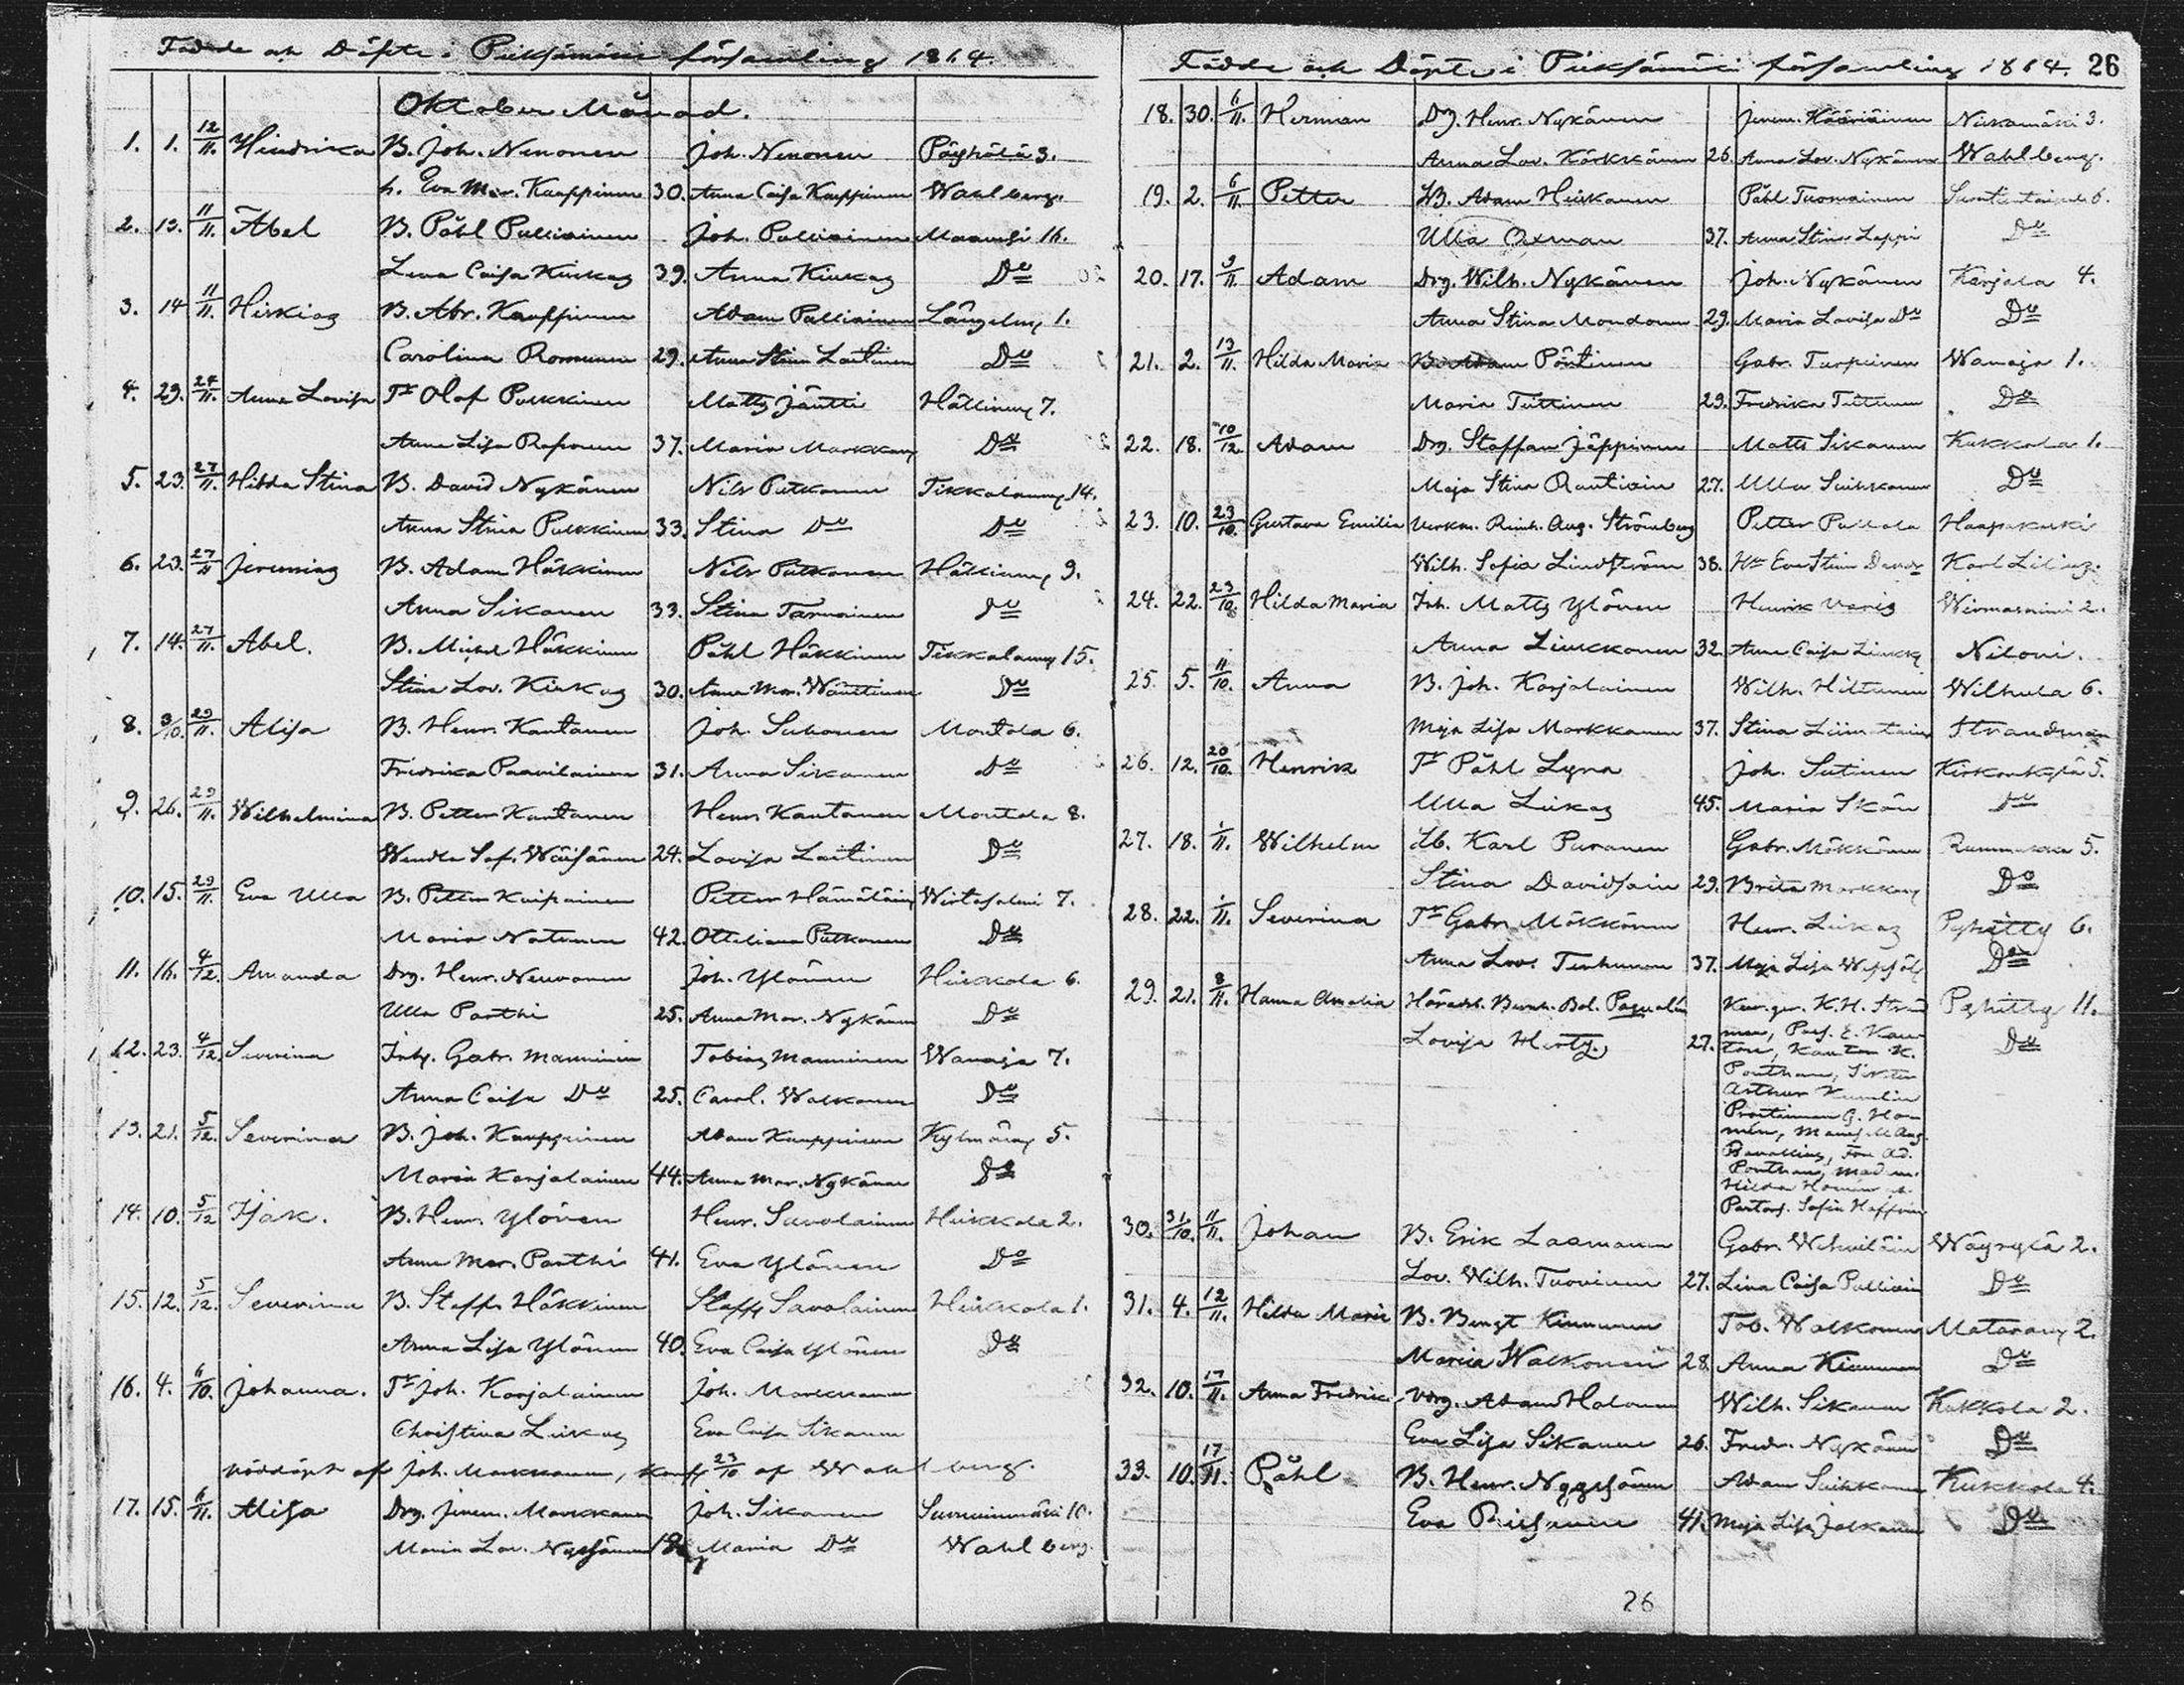 Födde och Döpte i Pieksämäki församling 1864.
Oktober Månad.
1. 1. 12/11. Hindrika B. Joh. Nenonen Joh. Nenonen Pöyhölä 3.
h. Eva Mar. Kauppinen 30. Anna Caisa Kauppinen Wahlberg.
2. 13. 11/11. Abel B. Påhl Pulliainen Joh. Pulliainen 16.
Lena Caisa Kiukas 39. Anna Kiukas Do
3. 14 11/11. Hiskias B. Abr. Kauppinen Adam Pulliainen Längelmy 1.
Carolina Romunen 29. Anna Stina Laitinen Do
4. 23. 27/11. Anna Lovisa Tr Olof Pulkkinen Matts Jäntti Hällinmy 7.
Anna Lisa 37. Maria Markkan Do
5. 23. 27/11. Hilda Stina B. David Nykänen Nils Putkonen Tikkalanmy 14.
Anna Stina Pulkkinen 33. Stina Do Do
6. 23. 27/11 Jeremias B. Adam Häkkinen Nils Putkonen Hällinmy 9.
Anna Sikanen 33. Stina Tarvainen Do
7. 14. 27/11. Abel. B. Michel Häkkinen Påhl Häkkinen Tikkalanmy 15.
Stina Lov. Kiukas 30. Anna Mar. Wänttinen Do
8. 3/10. 29/11. Alisa B. Henr. Kautanen Joh. Suhonen Montola 6.
Fredrika Paavilainen 31. Anna Sikanen Do
9. 26. 29/11. Wilhelmina B. Petter Kautanen Henr. Kautanen Montola 8.
Wendla Sof. Wäisänen 24. Lovisa Laitinen Do
10. 15. 29/11. Eva Ulla B. Petter Kuipainen Petter Hämäläin Wirtasalmi 7.
Maria Natunen 42. Ottiliana Putkonen Do
11. 16. 4/12. Amanda Drg. Henr. Neuvonen Joh. Ylönen Hiekkola 6.
Ulla Parthi 25. Anna Mar. Nykänen Do
12. 23. 4/12. Severina Inh. Gabr. Manninen Tobias Manninen Wanaja 7.
Anna Caisa Do 25. Carol. Walkonen Do
13. 21. 5/12. Severina B. Joh. Kauppinen Adam Kauppinen Kylmämy 5.
Maria Karjalainen 44. Anna Mar. Nykänen Do
14. 10. 5/12 Isak. B. Henr. Ylönen Henr. Savolainen Hiekkola 2.
Anna Mar. Parthi 41. Eva Ylönen Do
15. 12. 5/12. Severina B. Staff. Häkkinen Staff. Savolainen Hiekkola 1.
Anna Lisa Ylönen 40. Eva Caisa Ylönen Do
16. 4. 6/10. Johanna. Tr Joh. Karjalainen Joh. Markkanen
Christina Liukas Eva Caisa Sikanen
Nöddöpt af Joh. Markkanen, konf. 23/10 af Wahlberg.
17. 15. 6/11. Alisa Drg. Jerem. Markkanen Joh. Sikanen 10.
Maria Lov. Nyyssönen 18 Maria Do Wahlberg.
Födde och Döpte i Pieksämäki församling 1864. 26
18. 30. 6/11. Herman Drg. Henr. Nykänen Jerem. Kääriäinen Niskamäki 3.
Anna Lov. Kärkkänen 26. Anna Lov. Nykänen Wahlberg.
19. 2. 6/11. Petter B. Adam Heiskanen Påhl Tuomainen 6.
Ulla Oxman 37. Anna Stina Leppi Do
20. 17. 9/11. Adam Drg. Wilh. Nykänen Joh. Nykänen Karjala 4.
Anna Stina Mondonen 29. Maria Lovisa Do Do
21. 2. 13/11. Hilda Maria B. Adam Pöntinen Gabr. Turpeinen Wanaja 1.
Maria Tuttinen 29. Fredrika Tuttunen Do
22. 18. 10/12. Adam Drg. Staffan Jäppinen Matts Sikanen Kukkola 1.
Maja Stina Rautiain 27. Ulla Suihkonen Do
23. 10. 23/10. Gustava Emilia Verkm. Reinh. Aug. Strömberg Petter Pullola Haapakoski
Wilh. Sofia Lindström 38. Hu Eva Stina Karl Lilius.
24. 22. 23/10. Hilda Maria Inh. Matts Ylönen Henrik Varis Wirmasniemi 2.
Anna Liukkonen 32. Anna Caisa Liukk Niloni.
25. 5. 11/10. Anna B. Joh. Karjalainen Wilh. Hiltunen Wilhula 6.
Maja Lisa Markkanen 37. Stina Liimatain Strandman
26. 12. 20/10. Henrik Tr Påhl Lyra Joh. Sutinen Kirkonkylä 5.
Ulla Liukas 45. Maria Skön Do
27. 18. 1/11. Wilhelm Lb. Karl Puranen Gabr. Mökkönen 5.
Stina Davidsain 29. Brita Markkan Do
28. 22. 1/11. Severina Tr Gabr. Mökkönen Henr. Liukas Pyhitty 6.
Anna Lov. Tenhunen 37. Maja Lisa Do
29. 21. 8/11. Hanna Amalia Häradsh. Bernh. Bol. Pasqualin K. H. Strand Pyhitty 11.
Lovisa Hertz. 27. man, E. Kan Do
Kantor K.
Ponthan,
Arthur Kumlin
G. Ho
mén, Aug.
Ad.
Ponthan, Mad. m.
Hilda
Sofia
30. 31/10. 11/11. Johan B. Erik Laamanen Gabr. Wehviläin Wäyrylä 2.
Lov. Wilh. Tuovinen 27. Lina Caisa Pulliain Do
31. 4. 12/11. Hilda Maria B. Bengt Kinnunen Tob. Walkonen Mataramy 2.
Maria Walkonen 28. Anna Kinnunen Do
32. 10. 17/11. Anna Fredrica Vdrg. Adam Halonen Wilh. Sikanen Kukkola 2.
Eva Lisa Sikanen 26. Fredr. Nykänen Do
33. 10. 17/11. Påhl B. Henr. Nyyssönen Adam Suihkonen Kukkola 4.
Eva 41. Maja Lisa Jalkanen Do
26